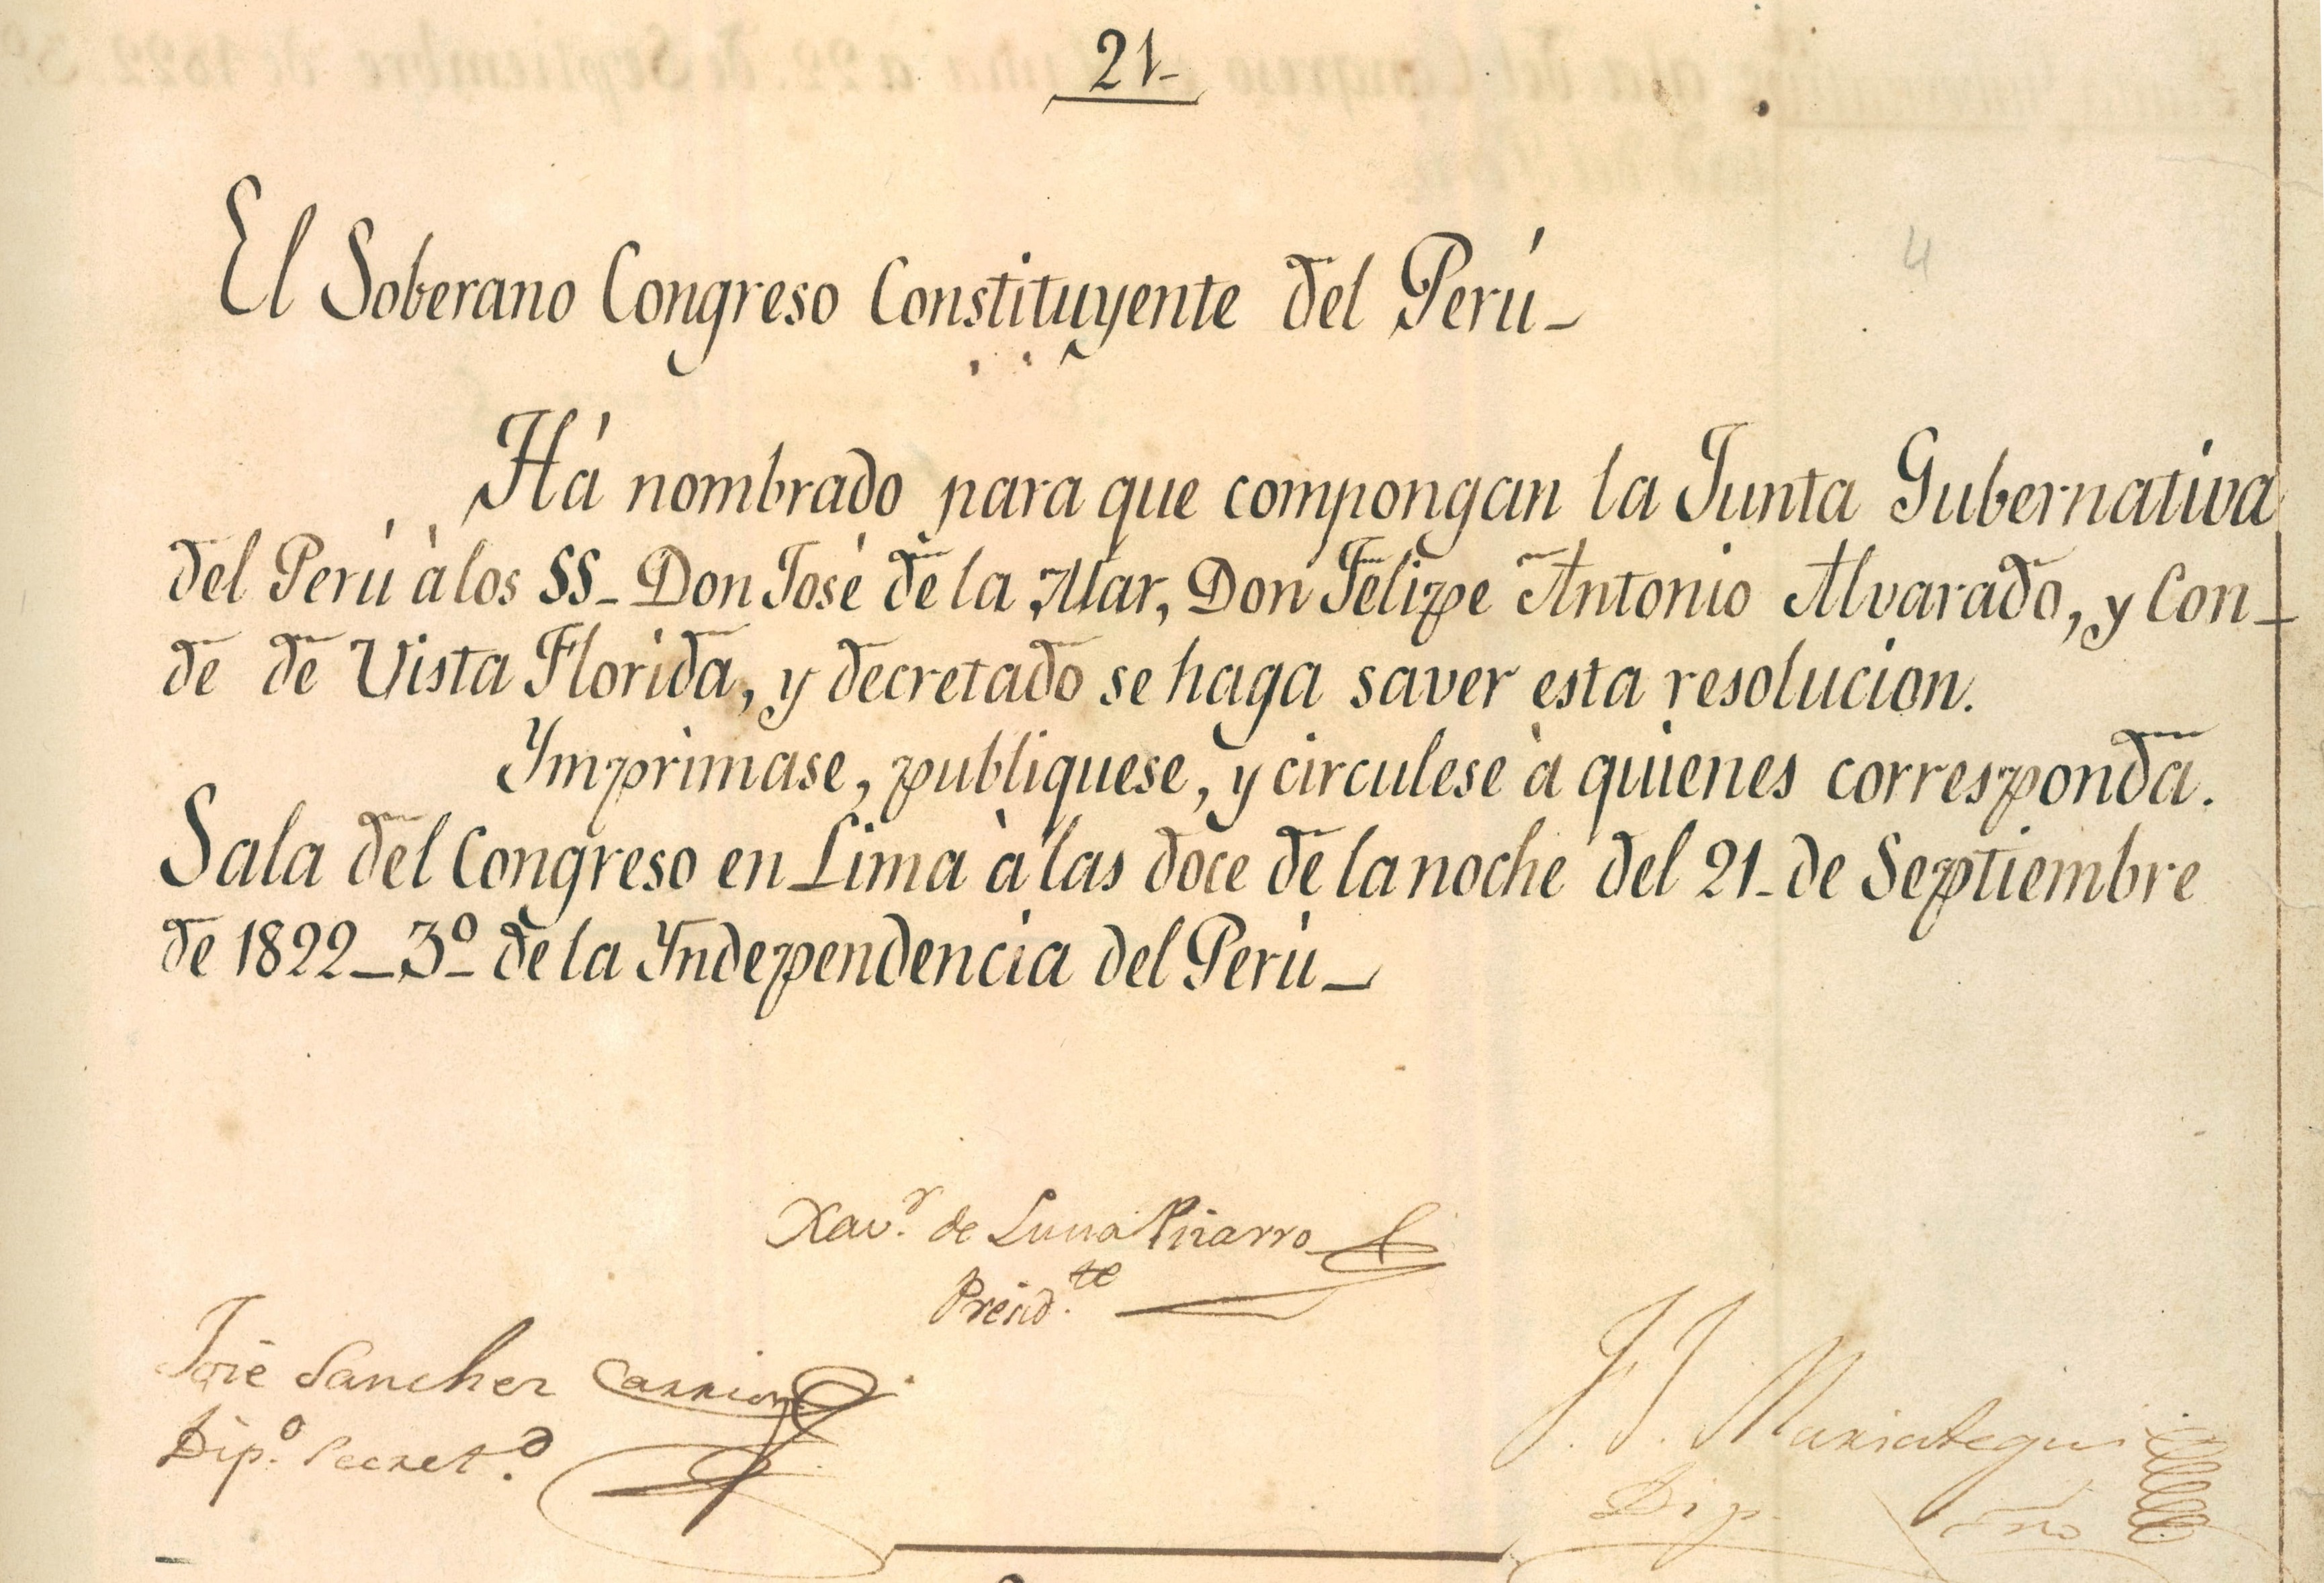 21-
4
El Soberano Congreso Constituyente del Perú-
Há nombrado para que compongan la Junta Gubernativa
del Perú à los SS- Don José de la Mar, Don Felipe Antonio Alvarado, y Con-
de de Vista Florida, y decretado se haga saver esta resolucion.
Ymprimase, publiquese, y circulese à quienes corresponda.
Sala del Congreso en Lima à las doce de la noche del 21- de Septiembre
de 1822-3º de la Yndependencia del Perú-
Xav.r de Luna Pizarro
Presid.te
José Sanchez Carrion
Dip.o Secret.o
F. J. Mariategui
Dip.